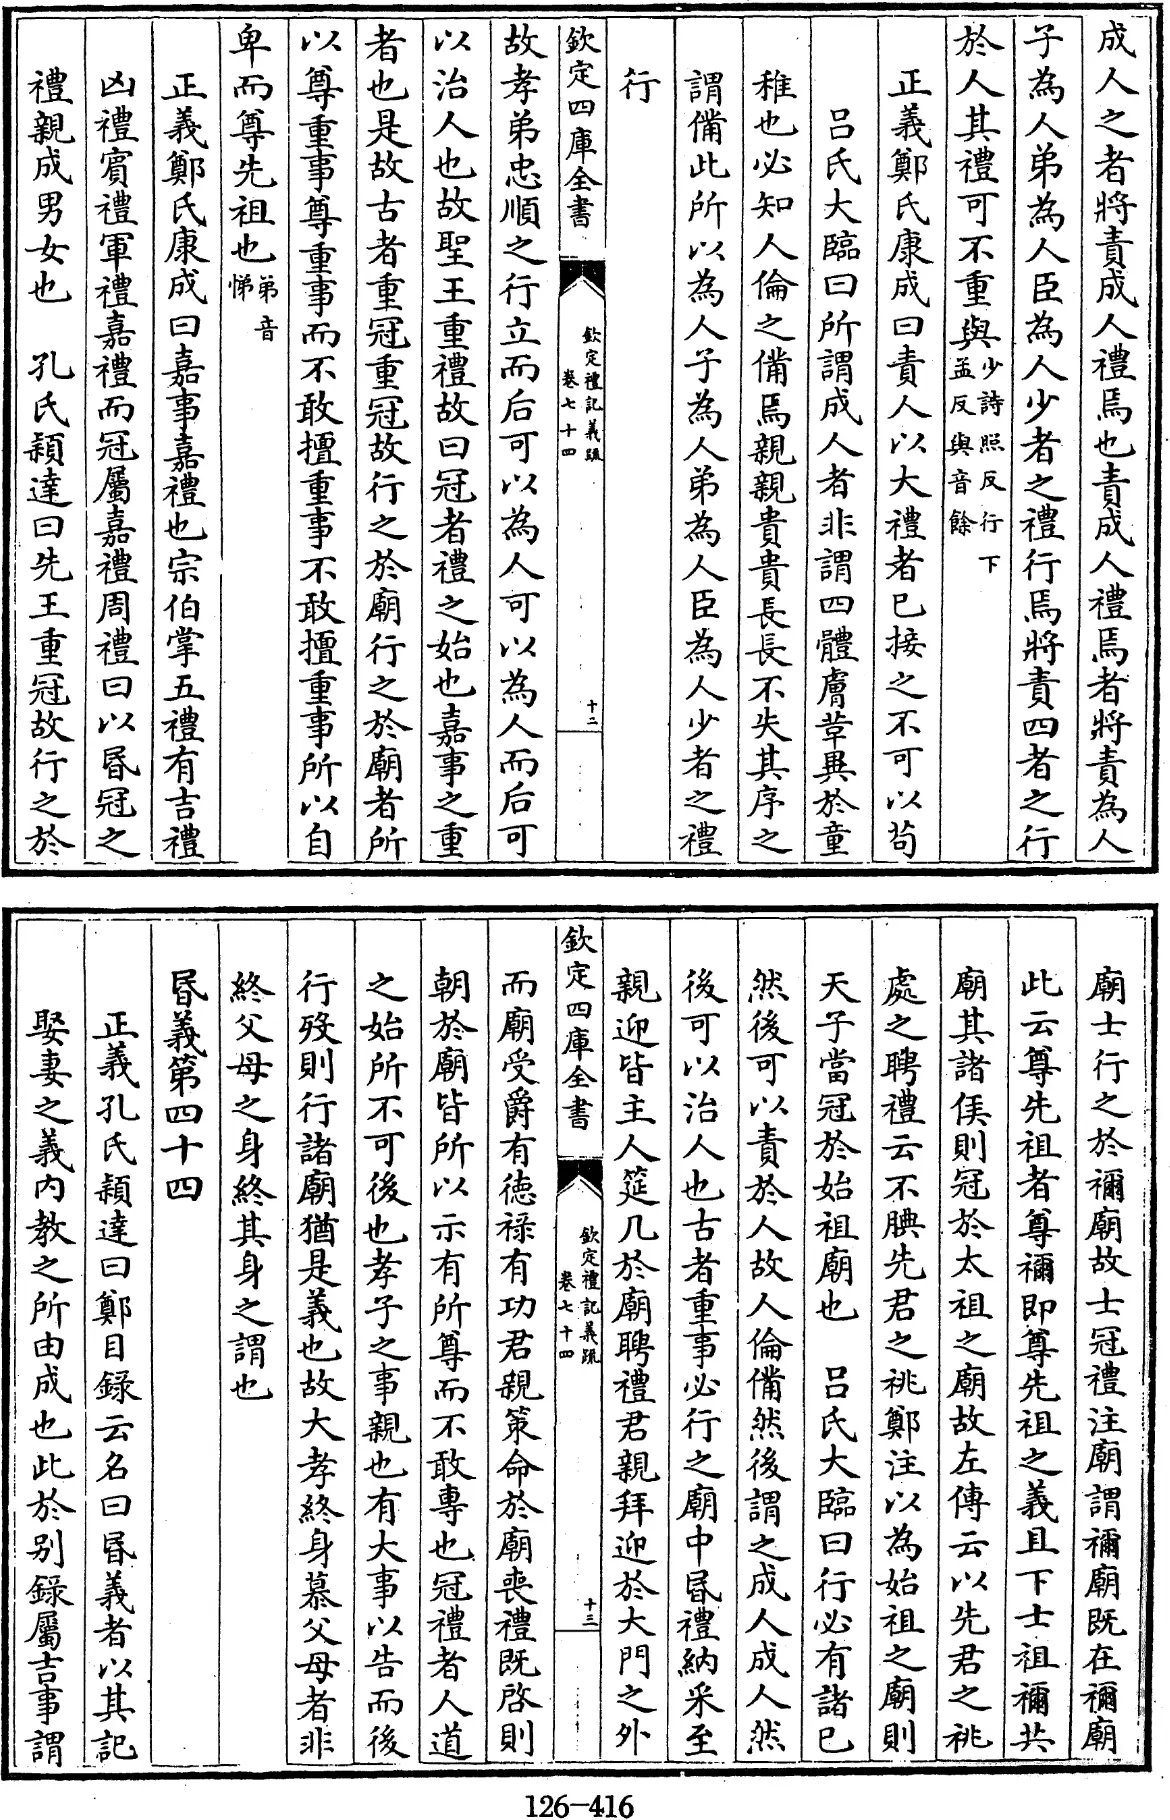 成人之者將責成人禮焉也責成人禮焉者將責為人
子為人弟為人臣為人少者之禮行焉將責四者之行
於人其禮可不重與少詩照反行下孟反與音餘
正義鄭氏康成曰責人以大禮者已接之不可以苟
吕氏大臨曰所謂成人者非謂四體膚革異於童
稚也必知人倫之備焉親親貴貴長長不失其序之
謂備此所以為人子為人弟為人臣為人少者之禮
行
欽定四庫全書
欽定禮記義疏
卷七十四
十二
故孝弟忠順之行立而后可以為人可以為人而后可
以治人也故聖王重禮故曰冠者禮之始也嘉事之重
者也是故古者重冠重冠故行之於廟行之於廟者所
以尊重事尊重事而不敢擅重事不敢擅重事所以自
卑而尊先祖也弟音悌
正義鄭氏康成曰嘉事嘉禮也宗伯掌五禮有吉禮
凶禮賓禮軍禮嘉禮而冠屬嘉禮周禮曰以昏冠之
禮親成男女也 孔氏穎達曰先王重冠故行之於
廟士行之於禰廟故士冠禮注廟謂禰廟既在禰廟
此云尊先祖者尊禰即尊先祖之義且下士祖禰共
廟其諸侯則冠於太祖之廟故左傳云以先君之祧
處之聘禮云不腆先君之祧鄭注以為始祖之廟則
天子當冠於始祖廟也 吕氏大臨曰行必有諸已
然後可以責於人故人倫備然後謂之成人成人然
後可以治人也古者重事必行之廟中昏禮納采至
親迎皆主人筵几於廟聘禮君親拜迎於大門之外
欽定四庫全書
欽定禮記義疏
卷七十四
十三
而廟受爵有德祿有功君親策命於廟喪禮既啓則
朝於廟皆所以示有所尊而不敢專也冠禮者人道
之始所不可後也孝子之事親也有大事以告而後
行歿則行諸廟猶是義也故大孝終身慕父母者非
終父母之身終其身之謂也
昏義第四十四
正義孔氏穎達曰鄭目録云名曰昏義者以其記
娶妻之義內教之所由成也此於别録屬吉事謂
126-416